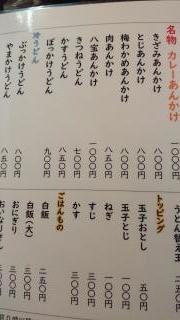 名物 カレーあんかけ 一〇〇〇円
きざみあんかけ 八〇〇円
とじあんかけ 八〇〇円
梅わかめあんかけ 八〇〇円
肉あんかけ 八五〇円
八宝あんかけ 一〇〇〇円
きつねうどん 七〇〇円
かすうどん 八五〇円
ぼっかけうどん 九〇〇円
冷うどん
ぶっかけうどん 八〇〇円
やまかけうどん 八五〇
トッピング
うどん替え玉 二〇〇円
玉子おとし 五〇円
玉子とじ 一〇〇円
ねぎ 一〇〇円
すじ 三〇〇円
かす 三〇〇円
ごはんもの
白飯 二五〇円
白飯(大) 三〇〇円
おにぎり 三〇〇円
おいなりさん